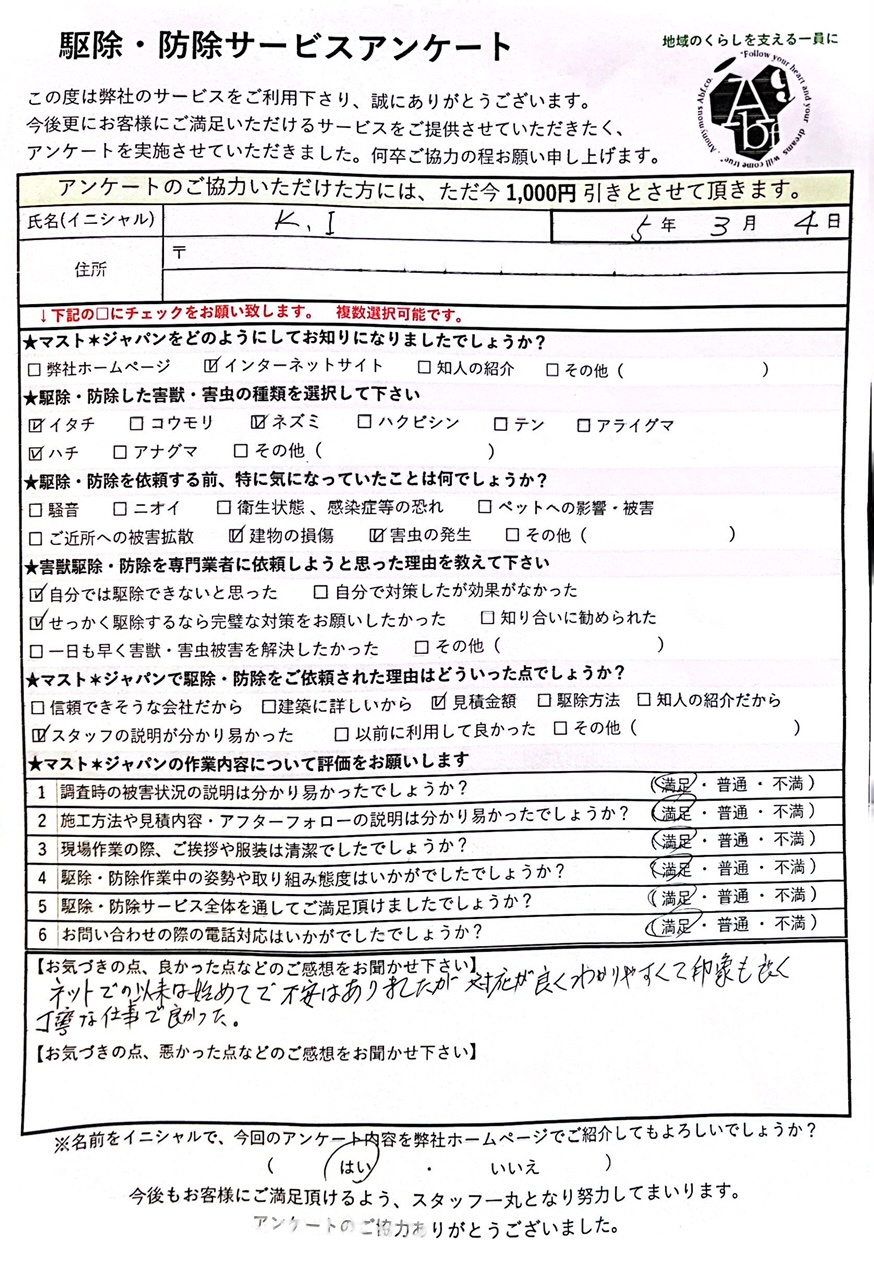 駆除・防除サービスアンケート
地域のくらしを支える一員に
"Follow your heart and your dreams will come true" Anonymous Abf.co.
Agbf
この度は弊社のサービスをご利用下さり、誠にありがとうございます。
今後更にお客様にご満足いただけるサービスをご提供させていただきたく、
アンケートを実施させていただきました。何卒ご協力の程お願い申し上げます。
アンケートのご協力いただけた方には、ただ今1,000円引きとさせて頂きます。
氏名(イニシャル) K.I 5年 3月 4日
住所 〒
↓下記の□にチェックをお願い致します。 複数選択可能です。
★マスト＊ジャパンをどのようにしてお知りになりましたでしょうか？
□弊社ホームページ ☑インターネットサイト □知人の紹介 □その他（ ）
★駆除・防除した害獣・害虫の種類を選択して下さい
☑イタチ □コウモリ ☑ネズミ □ハクビシン □テン □アライグマ
☑ハチ □アナグマ □その他（ ）
★駆除・防除を依頼する前、特に気になっていたことは何でしょうか？
□騒音 □ニオイ □衛生状態、感染症等の恐れ □ペットへの影響・被害
□ご近所への被害拡散 ☑建物の損傷 ☑害虫の発生 □その他（ ）
★害獣駆除・防除を専門業者に依頼しようと思った理由を教えて下さい
☑自分では駆除できないと思った □自分で対策したが効果がなかった
☑せっかく駆除するなら完璧な対策をお願いしたかった □知り合いに勧められた
□一日も早く害獣・害虫被害を解決したかった □その他（ ）
★マスト＊ジャパンで駆除・防除をご依頼された理由はどういった点でしょうか？
□信頼できそうな会社だから □建築に詳しいから ☑見積金額 □駆除方法 □知人の紹介だから
☑スタッフの説明が分かり易かった □以前に利用して良かった □その他（ ）
★マスト＊ジャパンの作業内容について評価をお願いします
1 調査時の被害状況の説明は分かり易かったでしょうか？ （満足・普通・不満）
2 施工方法や見積内容・アフターフォローの説明は分かり易かったでしょうか？ （満足・普通・不満）
3 現場作業の際、ご挨拶や服装は清潔でしたでしょうか？ （満足・普通・不満）
4 駆除・防除作業中の姿勢や取り組み態度はいかがでしたでしょうか？ （満足・普通・不満）
5 駆除・防除サービス全体を通してご満足頂けましたでしょうか？ （満足・普通・不満）
6 お問い合わせの際の電話対応はいかがでしたでしょうか？ （満足・普通・不満）
【お気づきの点、良かった点などのご感想をお聞かせ下さい】
ネットでの以来は始めてで不安はありましたが対応が良くわかりやすくて印象も良く
丁寧な仕事で良かった。
【お気づきの点、悪かった点などのご感想をお聞かせ下さい】
※名前をイニシャルで、今回のアンケート内容を弊社ホームページでご紹介してもよろしいでしょうか？
（ はい ・ いいえ ）
今後もお客様にご満足頂けるよう、スタッフ一丸となり努力してまいります。
アンケートのご協力ありがとうございました。